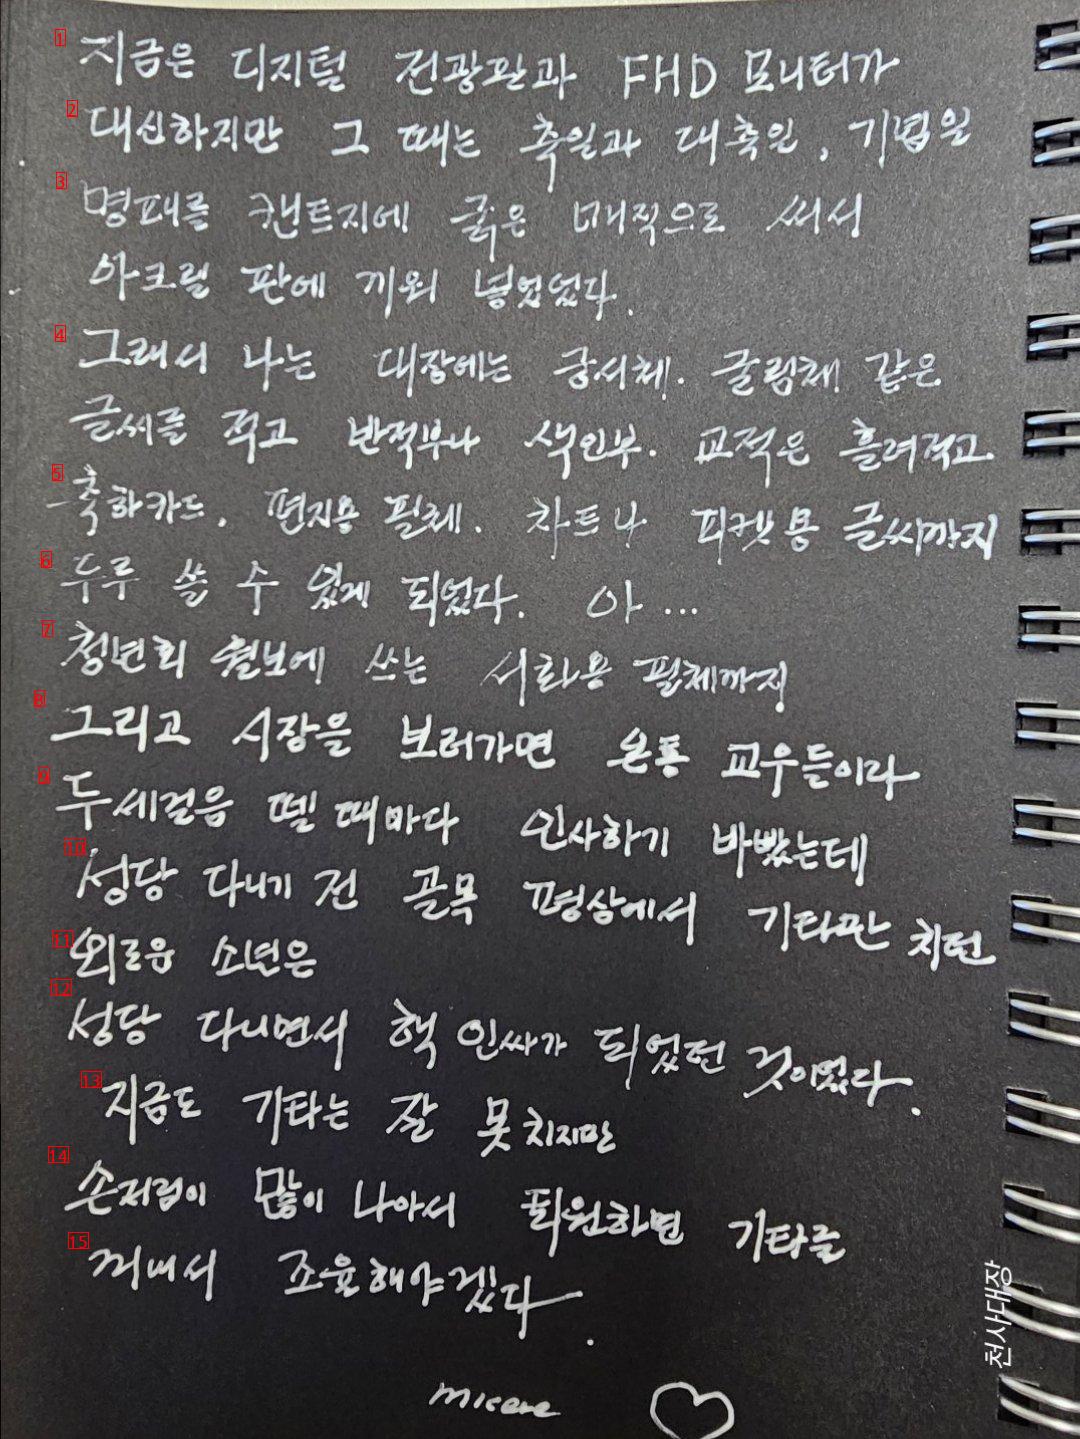 1 지금은 디지털 전광판과 FHD 모니터가
2 대신하지만 그 때는 축일과 대축일, 기념일
3 명패를 켄트지에 굵은 매직으로 써서
아크릴 판에 끼워 넣었었다.
4 그래서 나는 대장에는 궁서체. 굴림체 같은
글씨를 적고 반적부나 색인부. 교적은 흘려적고
5 축하카드, 편지용 필체. 차트나 피켓용 글씨까지
6 두루 쓸 수 있게 되었다. 아...
7 청년회 월보에 쓰는 서화용 필체까지
8 그리고 시장을 보러가면 온통 교우들이라
9 두세걸음 뗄 때마다 인사하기 바빴는데
10 성당 다니기 전 골목 평상에서 기타만 치던
11 외로운 소년은
12 성당 다니면서 핵 인싸가 되었던 것이었다.
13 지금도 기타는 잘 못치지만
14 손저림이 많이 나아서 퇴원하면 기타를
15 꺼내서 조율해야겠다.
천사대장